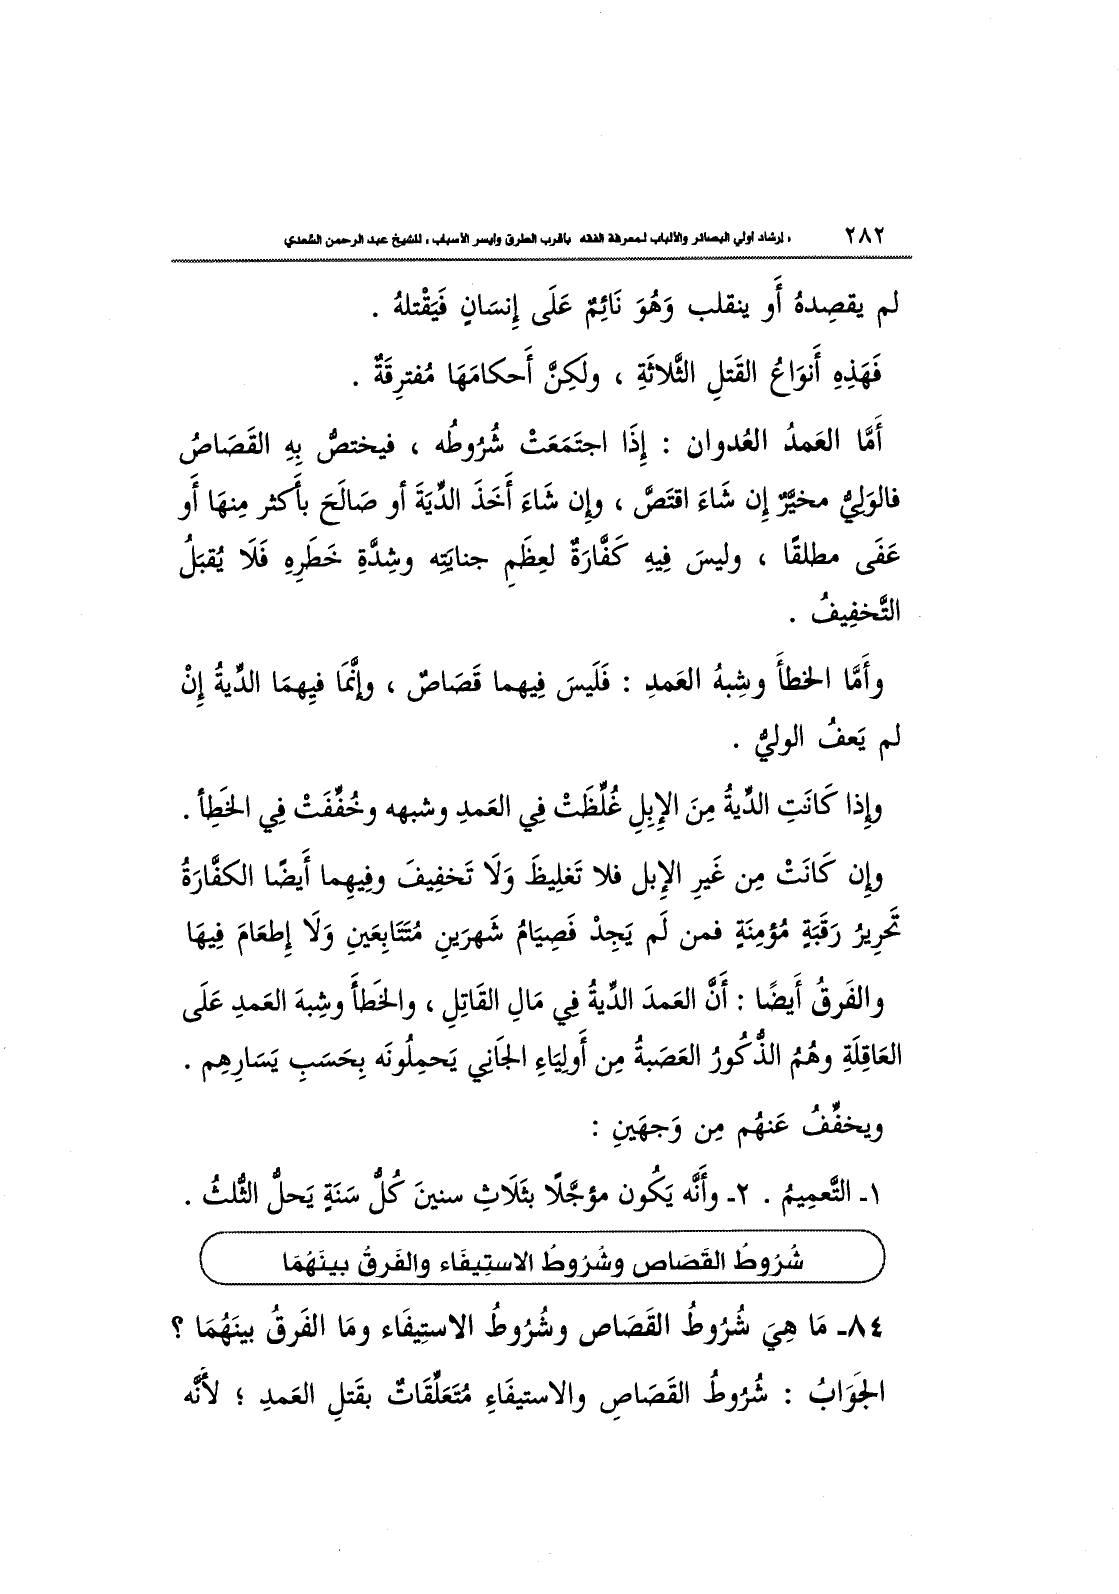 ٢٨٢ « إرشاد أولي البصائر والألباب لمعرفة الفقه بأقرب الطرق وأيسر الأسباب » للشيخ عبد الرحمن السَّعدي
لم يقصِدهُ أَو ينقلب وَهُوَ نَائِمٌ عَلَى إِنسَانٍ فَيَقْتلهُ .
فَهَذِهِ أَنوَاعُ القَتلِ الثَّلاثَةِ ، ولَكِنَّ أَحكامَهَا مُفترِقَةٌ .
أَمَّا العَمدُ العُدوان : إِذَا اجتَمَعَتْ شُرُوطُه ، فيختصُّ بِهِ القَصَاصُ
فالوَلِيُّ مخيَّرٌ إِن شَاءَ اقتَصَّ ، وإِن شَاءَ أَخَذَ الدِّيَةَ أو صَالَحَ بأَكثر مِنهَا أَو
عَفَى مطلقًا ، وليسَ فِيهِ كَفَّارَةٌ لعِظَمِ جنايَتِه وشِدَّةِ خَطَرِهِ فَلَا يُقبَلُ
التَّخفِيفُ .
وأَمَّا الخطأَ وشِبهُ العَمدِ : فَلَيسَ فِيهما قَصَاصٌ ، وإِنَّمَا فيِهمَا الدِّيةُ إِنْ
لم يَعفُ الوليُّ .
وإِذا كَانَتِ الدِّيةُ مِنَ الإِبِلِ غُلِّظَتْ فِي العَمدِ وشبهه وخُفِّفَتْ فِي الخَطِأ .
وإِن كَانَتْ مِن غَيرِ الإِبل فلا تَغلِيظَ وَلَا تَخفِيفَ وفِيهِما أَيضًا الكفَّارَةُ
تَحرِيرُ رَقَبَةٍ مُؤمِنَةٍ فمن لَم يَجِدْ فَصِيَامُ شَهرَينِ مُتَتَابِعَينِ وَلَا إِطعَامَ فِيهَا
والفَرقُ أَيضًا : أَنَّ العَمدَ الدِّيةُ فِي مَالِ القَاتِلِ ، والخَطأَ وشِبهَ العَمدِ عَلَى
العَاقِلَةِ وهُمُ الذُّكُورُ العَصَبةُ مِن أَولِيَاءِ الجَانِي يَحمِلُونَه بِحَسَبِ يَسَارِهِم .
ويخفَّفُ عَنهُم مِن وَجهَينِ :
١ـ التَّعمِيمُ . ٢ـ وأَنَّه يَكُون مؤجَّلًا بثَلَاثِ سنينَ كُلُّ سَنَةٍ يَحلُّ الثُّلثُ .
شُرُوطُ القَصَاصِ وشُرُوطُ الاستِيفَاء والفَرقُ بينَهُمَا
٨٤ـ مَا هِيَ شُرُوطُ القَصَاص وشُرُوطُ الاستِيفَاء ومَا الفَرقُ بينَهُمَا ؟
الجَوَابُ : شُرُوطُ القَصَاصِ والاستيفَاءِ مُتَعَلِّقَاتٌ بقَتلِ العَمدِ ؛ لأَنَّه